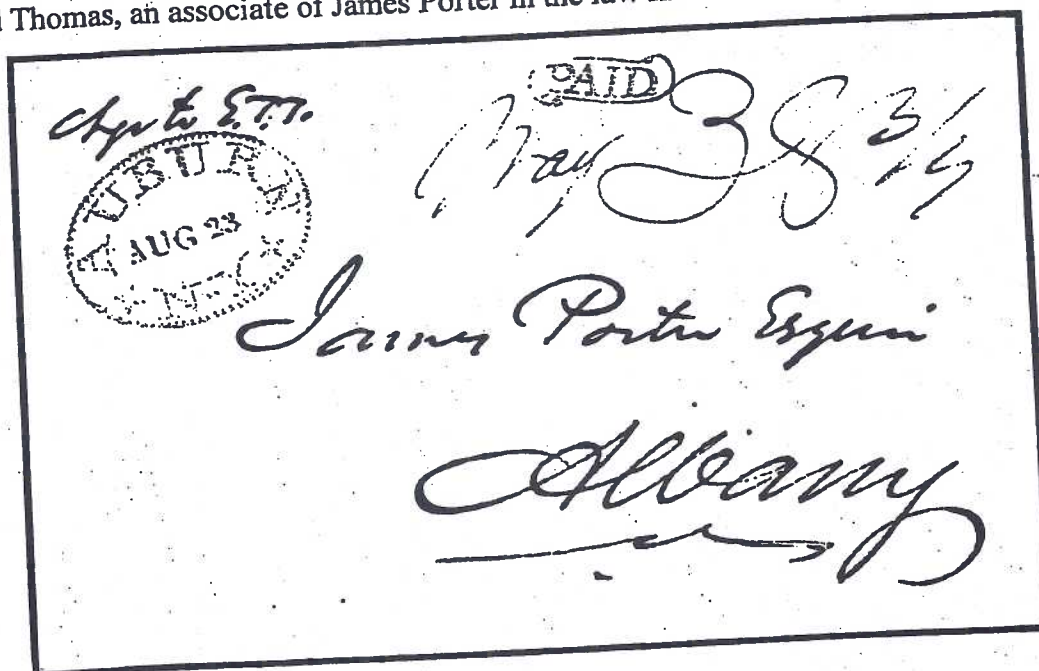 Thomas, an associate of James Porter in the law
PAID
Chge to E.T.T.
AUBURN
AUG 23
N-Y
James Porter Esquire
Albany